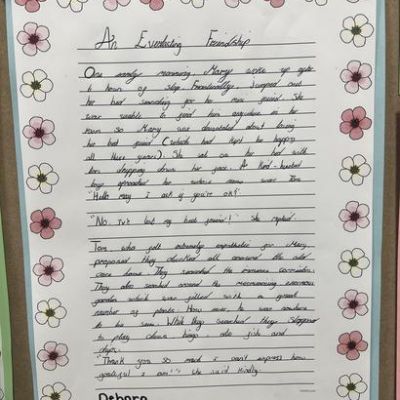 An Everlasting Friendship
One sandy morning, Mary woke up after
hours of sleep. Frantically, jumped out
her bed searching for her new friend. She
was unable to find him anywhere in the
room so Mary was devastated about losing
her best friend (which had kept her happy
all these years). She sat on her bed with
tears dripping down her face. A kind-hearted
boy approached her whose name was Tom
"Hello may I ask if you're ok?".
"No, I've lost my best friend!" She replied.
Tom who felt extremely empathetic for Mary,
proposed they checked all around the old
care home. They searched the immense corridor.
They also searched around the enormous
garden which was filled with a great
number of plants. How ever, he was nowhere
to be seen. While they searched they stopped
to play
chips.
Thank you so much I can't express how
grateful I am" she said kindly.
Debora